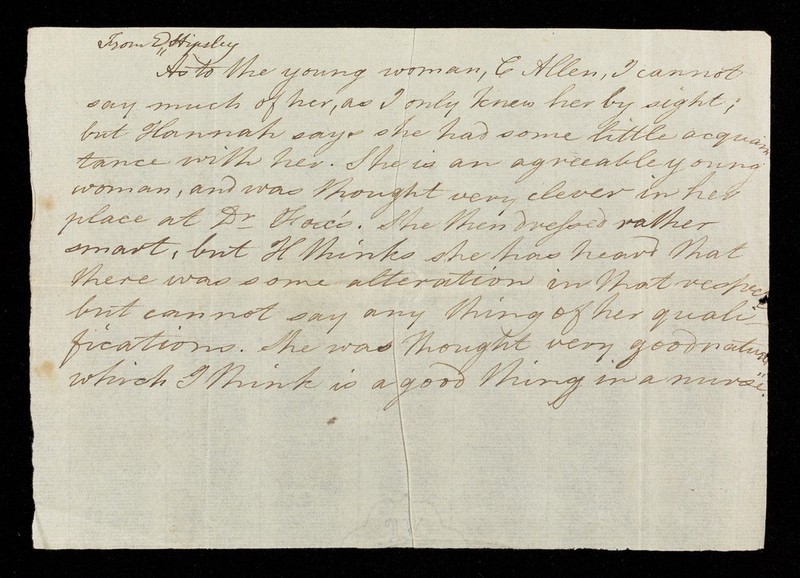 From E Hipsley
"As to the young woman, C Allen, I cannot
say much of her, as I only knew her by sight;
but Hannah says she had some little acquain
tance with her. She is an agreeable young
woman, and was thought very clever in her
place at Dr Fox's. She then dressed rather
smart, but H thinks she has heard that
there was some alteration in that respect
but cannot say any thing of her quali-
fications. She was thought very goodnatured
which I think is a good thing in a nurse."